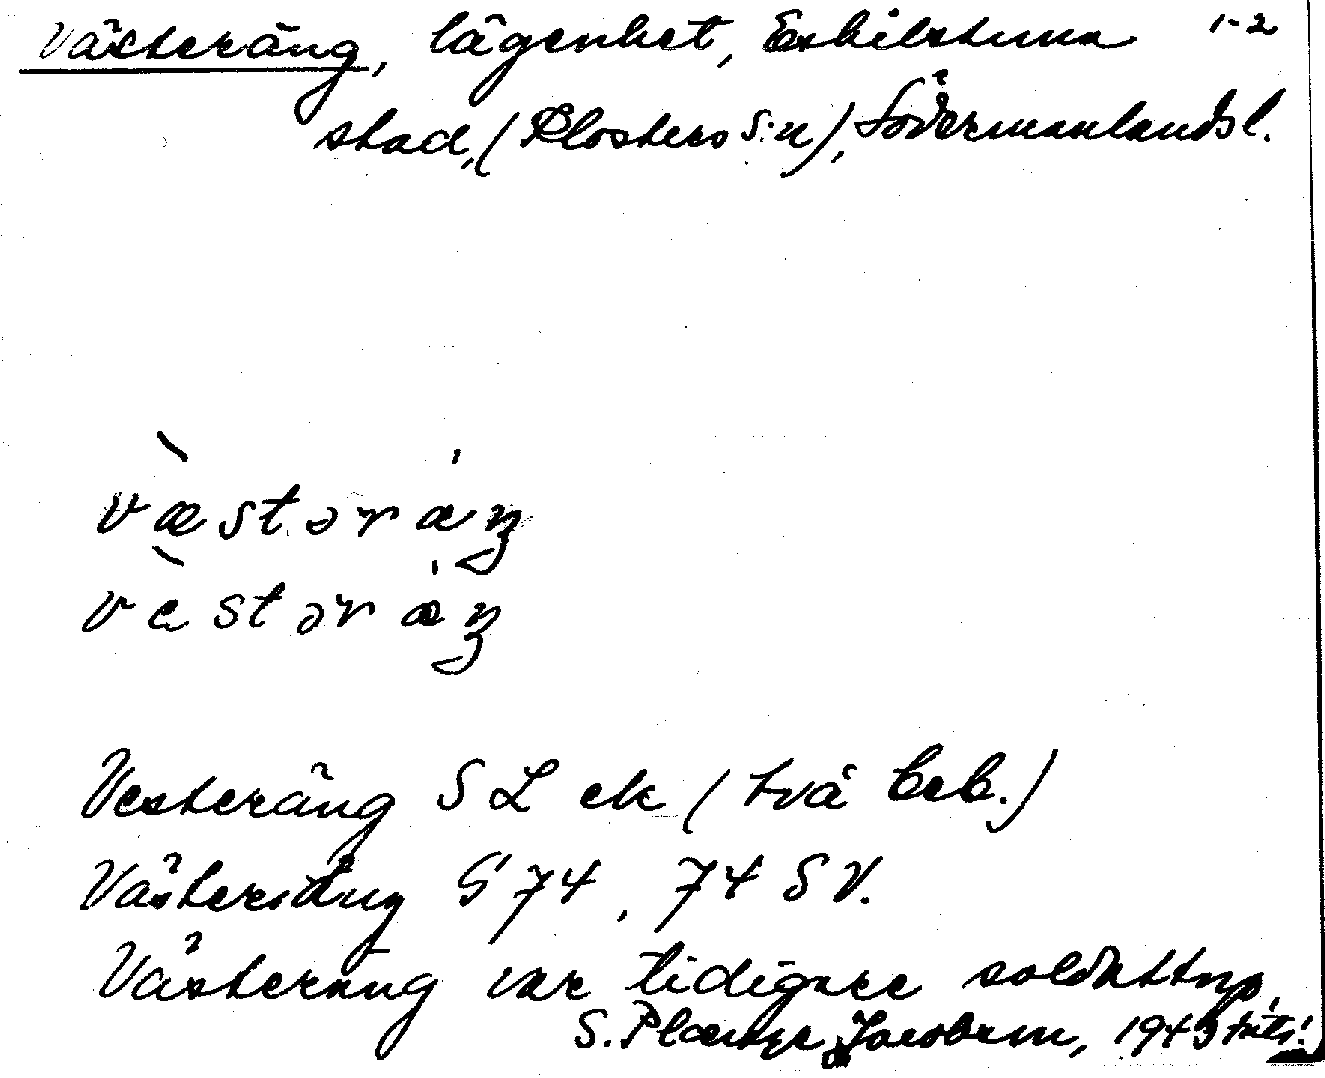 Västeräng, lägenhet, Eskilstuna 1-2
stad, (Klosters s:n), Södermanlands l.
væ̀stəræ̇ŋ
vèstəræ̇ŋ
Vesteräng S L ek (två beb.)
Västeräng G 74, 74 SV.
Västeräng var tidigare soldattorp,
S. Jacobson, 1943